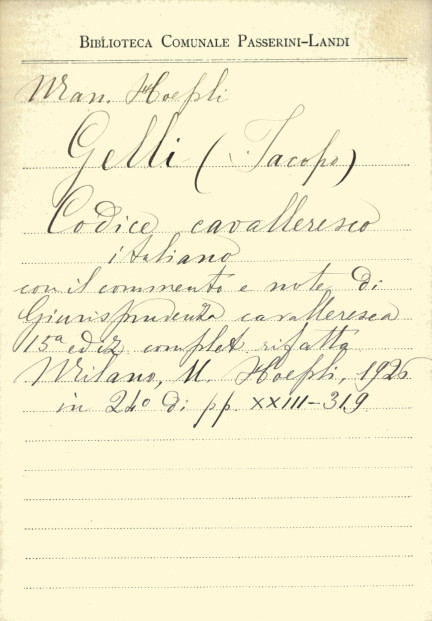 BIBLIOTECA COMUNALE PASSERINI-LANDI
Man. Hoepli
Gelli (Jacopo)
Codice cavalleresco
italiano
con il commento e note di
Giurisprudenza cavalleresca
15ª ediz complet rifatta
Milano, U. Hoepli, 1926
in 24º di pp. XXIII-319